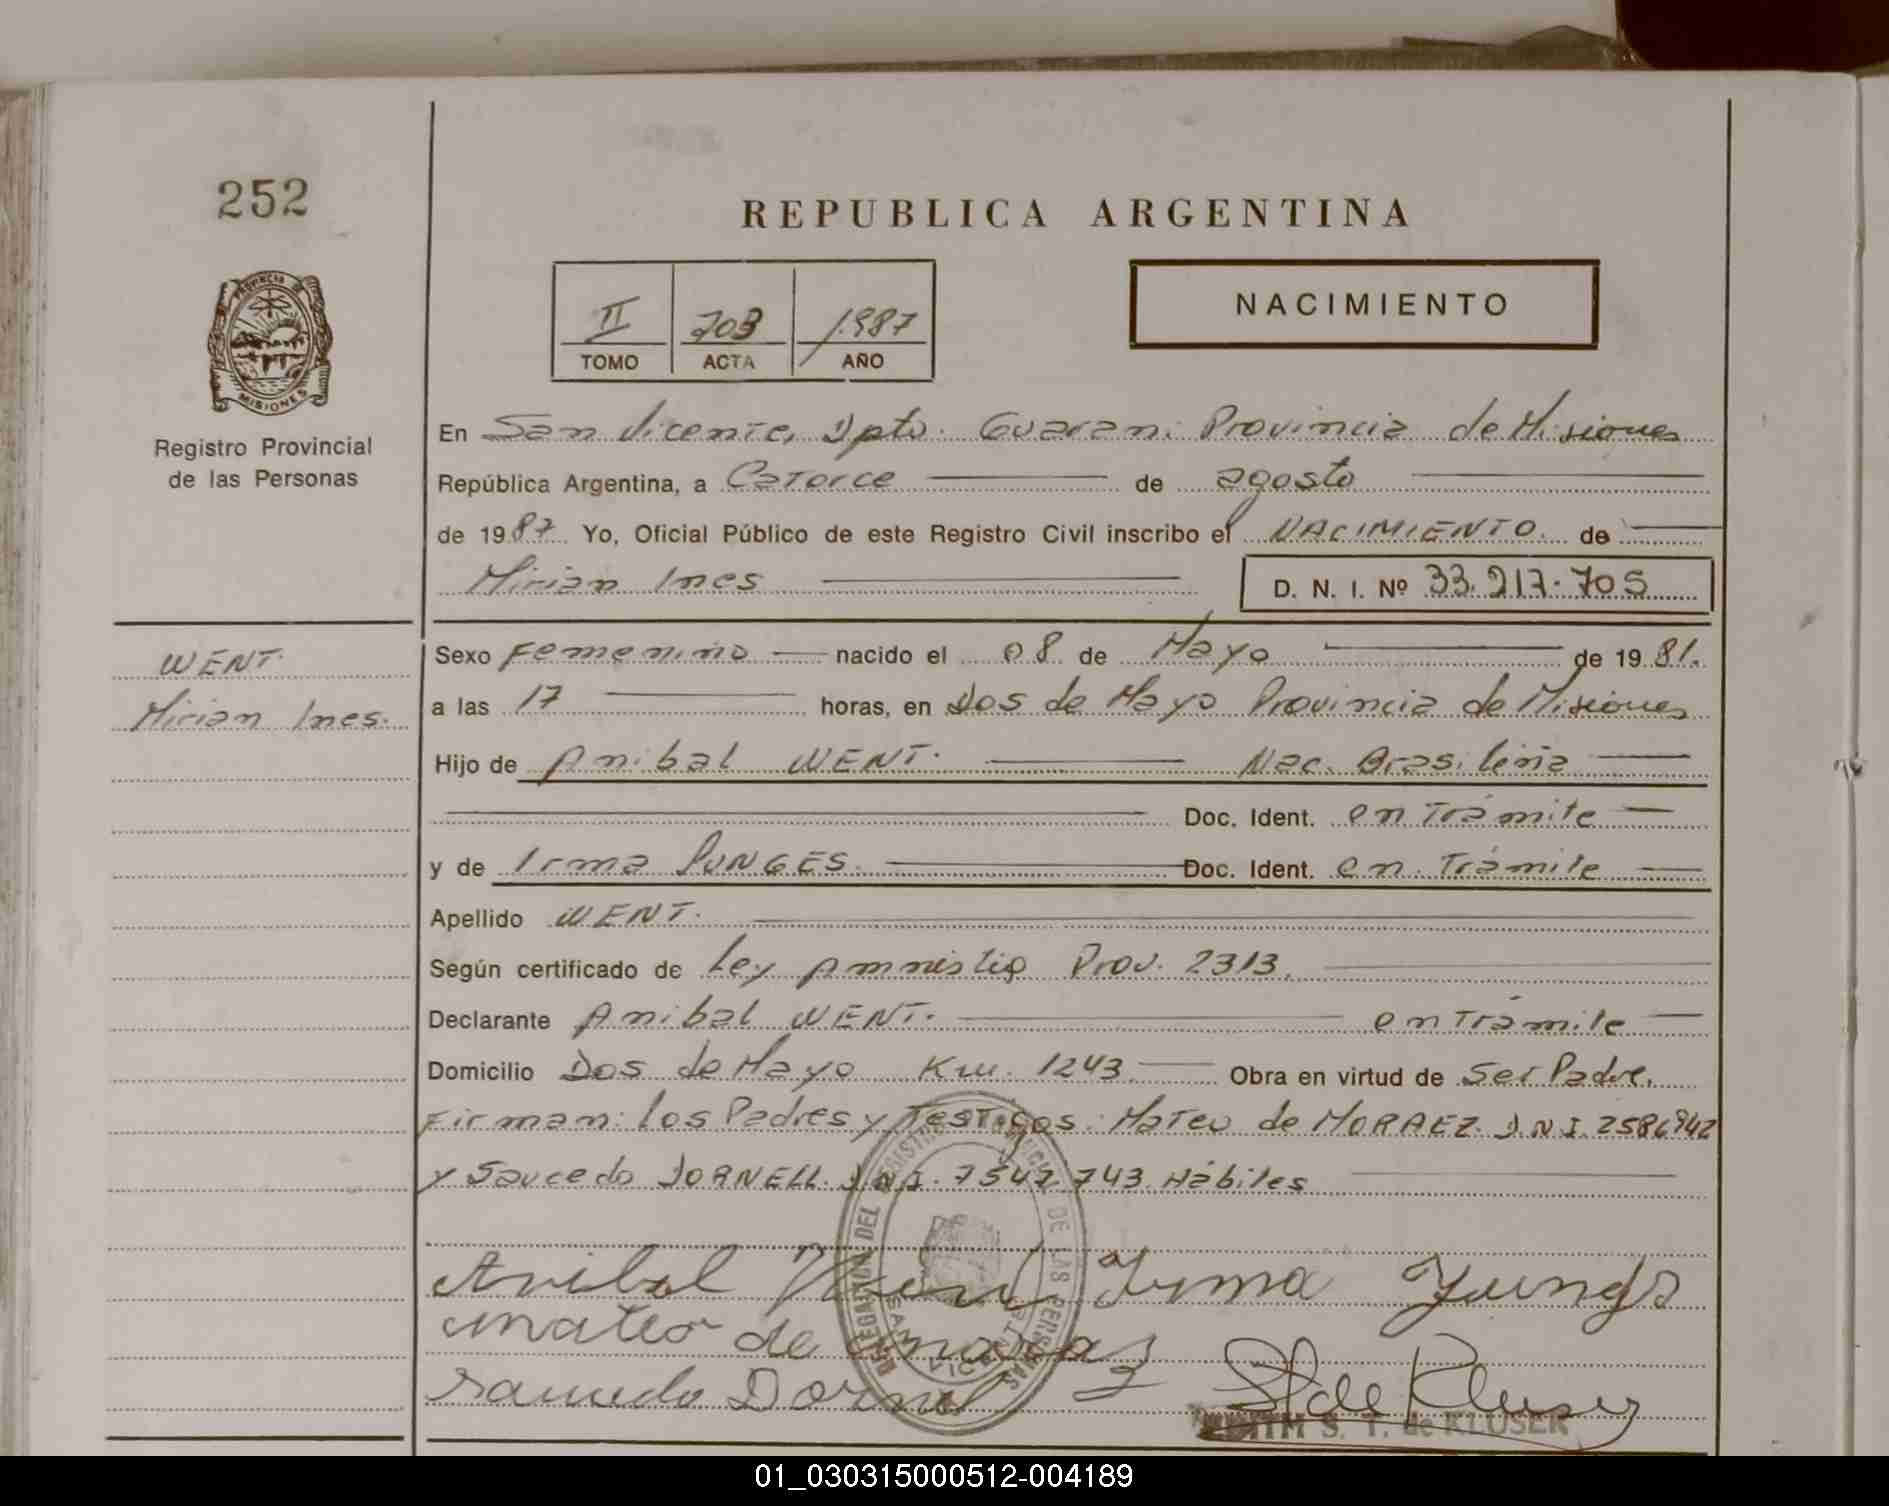 252
REPUBLICA ARGENTINA
PROVINCIA DE
MISIONES
Registro Provincial
de las Personas
II 703 1.987
TOMO ACTA AÑO
NACIMIENTO
En San Vicente, Dpto. Guarani Provincia de Misiones
República Argentina, a Catorce de agosto
de 1987 Yo, Oficial Público de este Registro Civil inscribo el NACIMIENTO. de
Mirian Ines D. N. I. Nº 33.217.705
WENT.
Mirian Ines.
Sexo Femenino nacido el 08 de Mayo de 1981.
a las 17 horas, en Dos de Mayo Provincia de Misiones
Hijo de Anibal WENT. Nac. Brasileña
Doc. Ident. en Trámite
y de Irma JUNGES. Doc. Ident. en Trámite
Apellido WENT.
Según certificado de Ley Amnistia Prov. 2313.
Declarante Anibal WENT. en Trámite
Domicilio Dos de Mayo Km. 1243. Obra en virtud de Ser Padre.
Firman: los Padres y Testigos: Mateo de MORAEZ D.N.I.
y Saucedo DORNELL. D.N.I. 7547.743 Hábiles
Anibal Went Irma Junges
mateo de moraez
Saucedo Dornel
S T de Kluser
S. T. de KLUSER
01_030315000512-004189